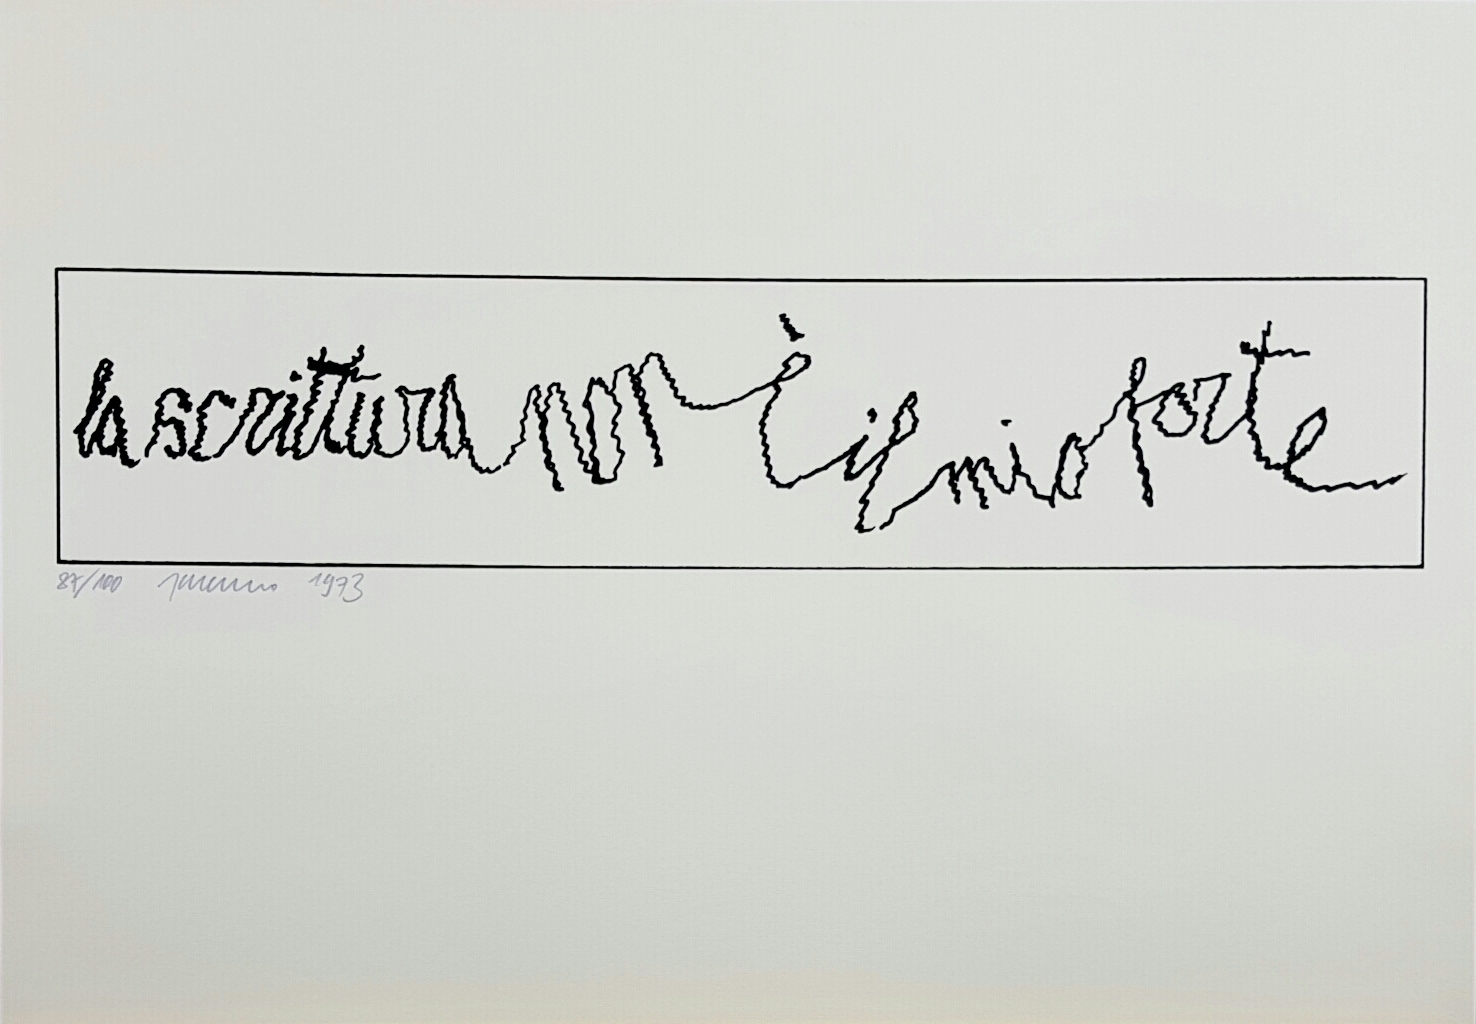 la scrittura non è il mio forte
87/100 1973